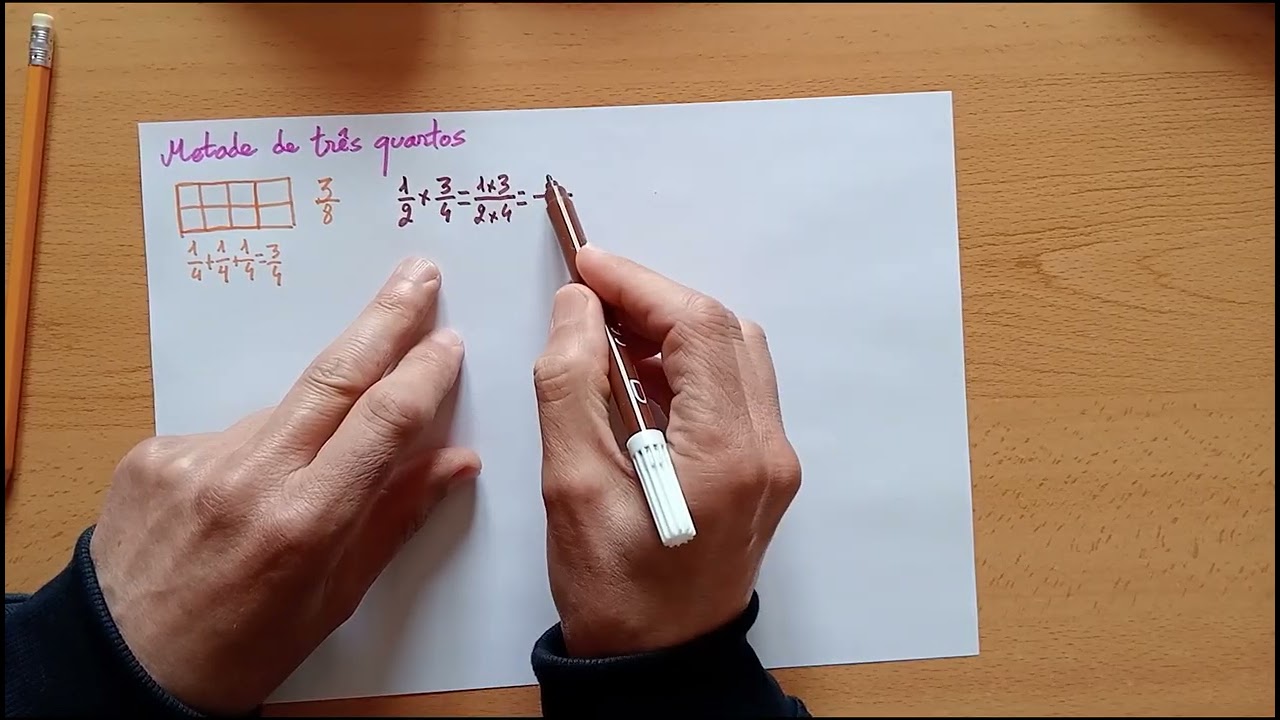 Metade de três quartos
3/8
1/4+1/4+1/4=3/4
1/2×3/4=1×3/2×4=